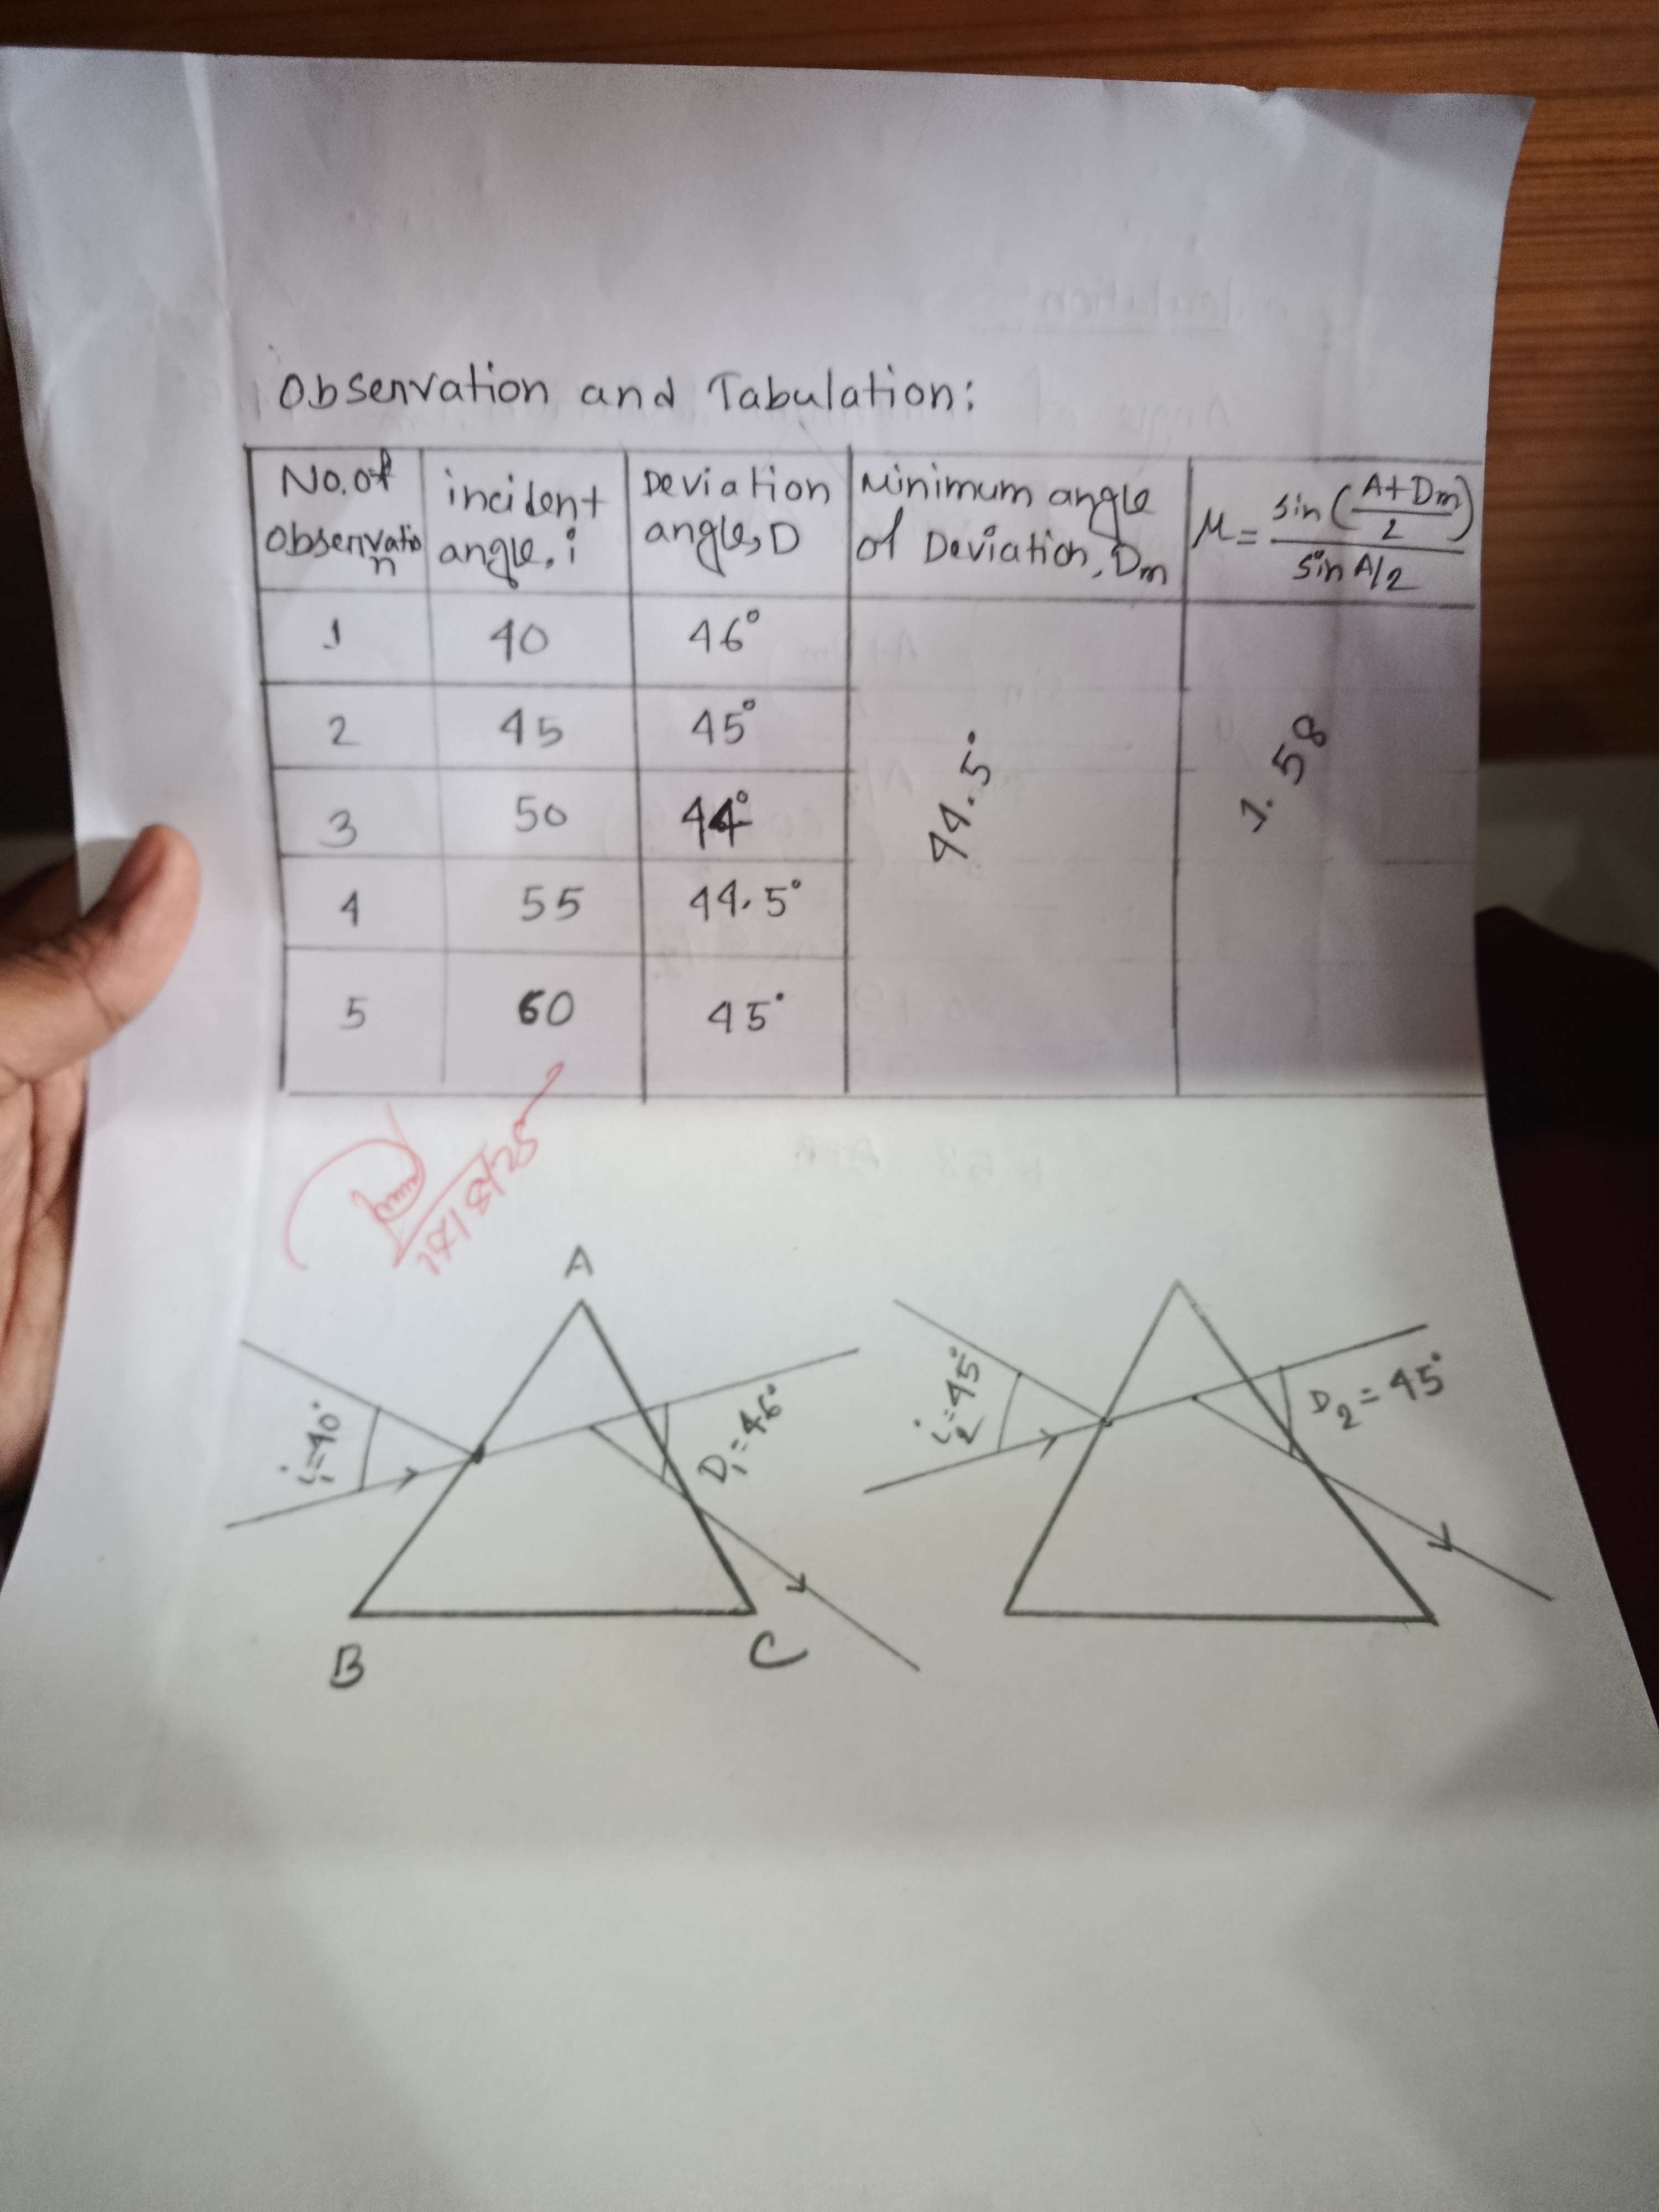 Observation and Tabulation:
No. of Observation
incident angle, i
Deviation angle, D
Minimum angle of Deviation, Dm
μ = sin (A+Dm/2) / sin A/2
1 40 46°
2 45 45°
3 50 44°
4 55 44.5°
5 60 45°
44.5°
1.58
17/8/25
A
i₁=40°
D₁=46°
B
C
i₂=45°
D₂=45°